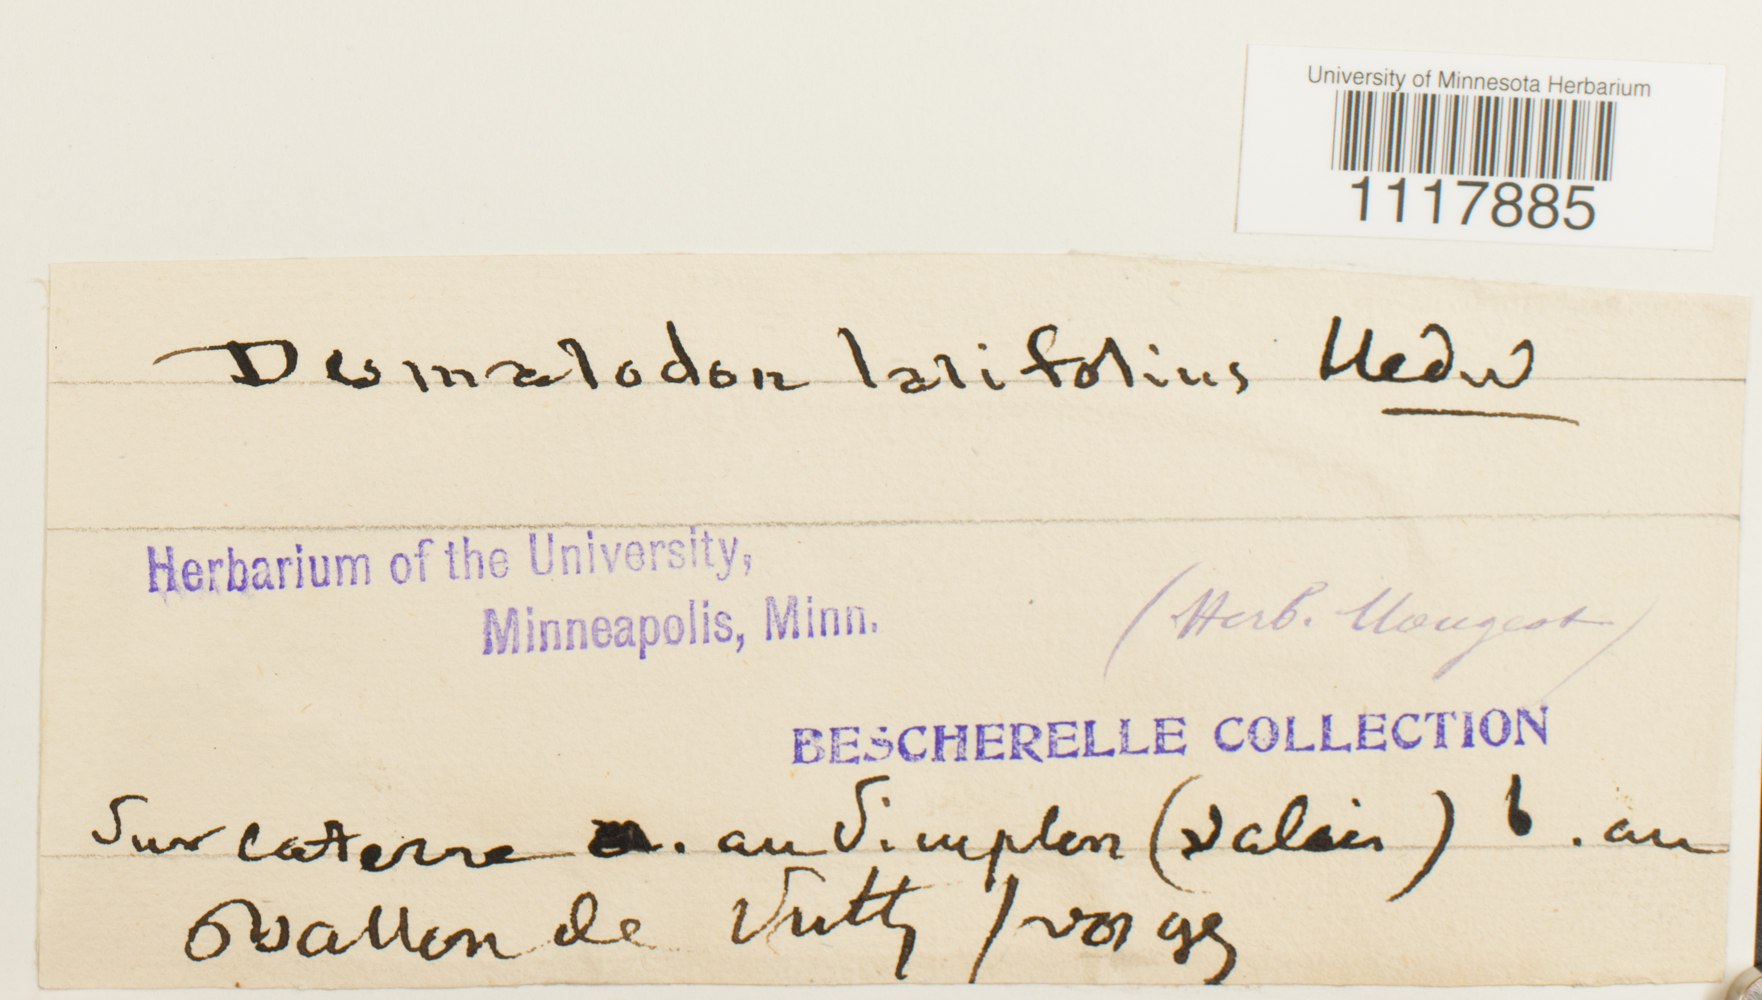 University of Minnesota Herbarium
1117885
Desmatodon latifolius Hedw
Herbarium of the University,
Minneapolis, Minn.
(Herb. Mougeot)
BESCHERELLE COLLECTION
Sur la terre a. au Simplon (valais) b. au
Ballon de